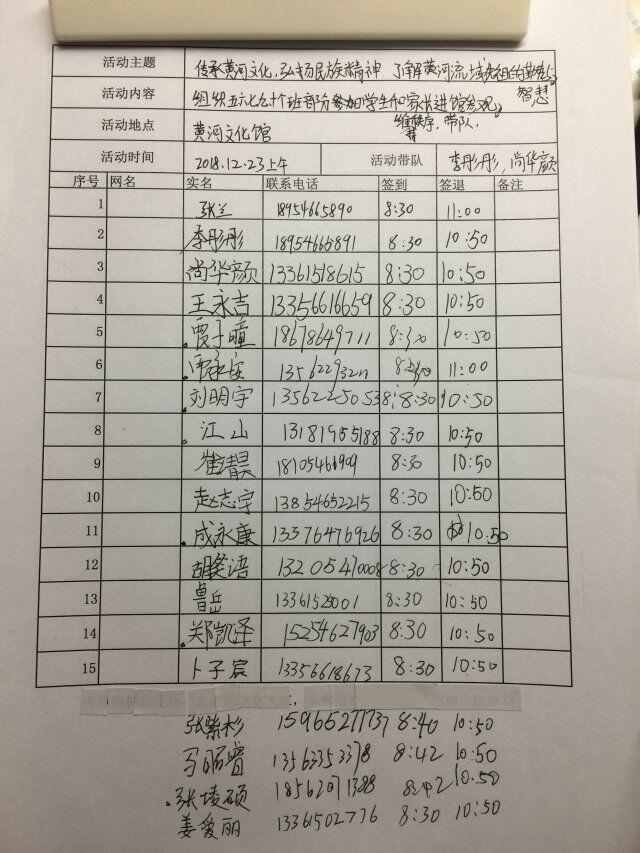 活动主题 传承黄河文化,弘扬民族精神 了解黄河流域先祖的勤劳与智慧
活动内容 组织五六七九十班部分参加学生和家长进馆参观。
维持秩序,带队.
活动地点 黄河文化馆
活动时间 2018.12.23上午 活动带队 李彤彤,尚华颜
序号 网名 实名 联系电话 签到 签退 备注
1 张兰 18954665890 8:30 11:00
2 李彤彤 18954665891 8:30 10:50
3 尚华颜 13361518615 8:30 10:50
4 王永吉 13356616659 8:30 10:50
5 贾子瞳 18678649711 8:30 10:50
6 11:00
7 刘明宇 13562225053 8:30 10:50
8 江山 13181955188 8:30 10:50
9 18105466909 8:30 10:50
10 赵志宇 13854652215 8:30 10:50
11 成永康 13376476926 8:30 10:50
12 胡 语 13205470008 8:30 10:50
13 鲁岳 8:30 10:50
14 郑凯泽 15254627903 8:30 10:50
15 卜子宸 13356618673 8:30 10:50
张紫杉 15965277737 8:40 10:50
马 13563353378 8:42 10:50
张 硕 18562071388 8:42 10:50
姜爱丽 13361502776 8:30 10:50